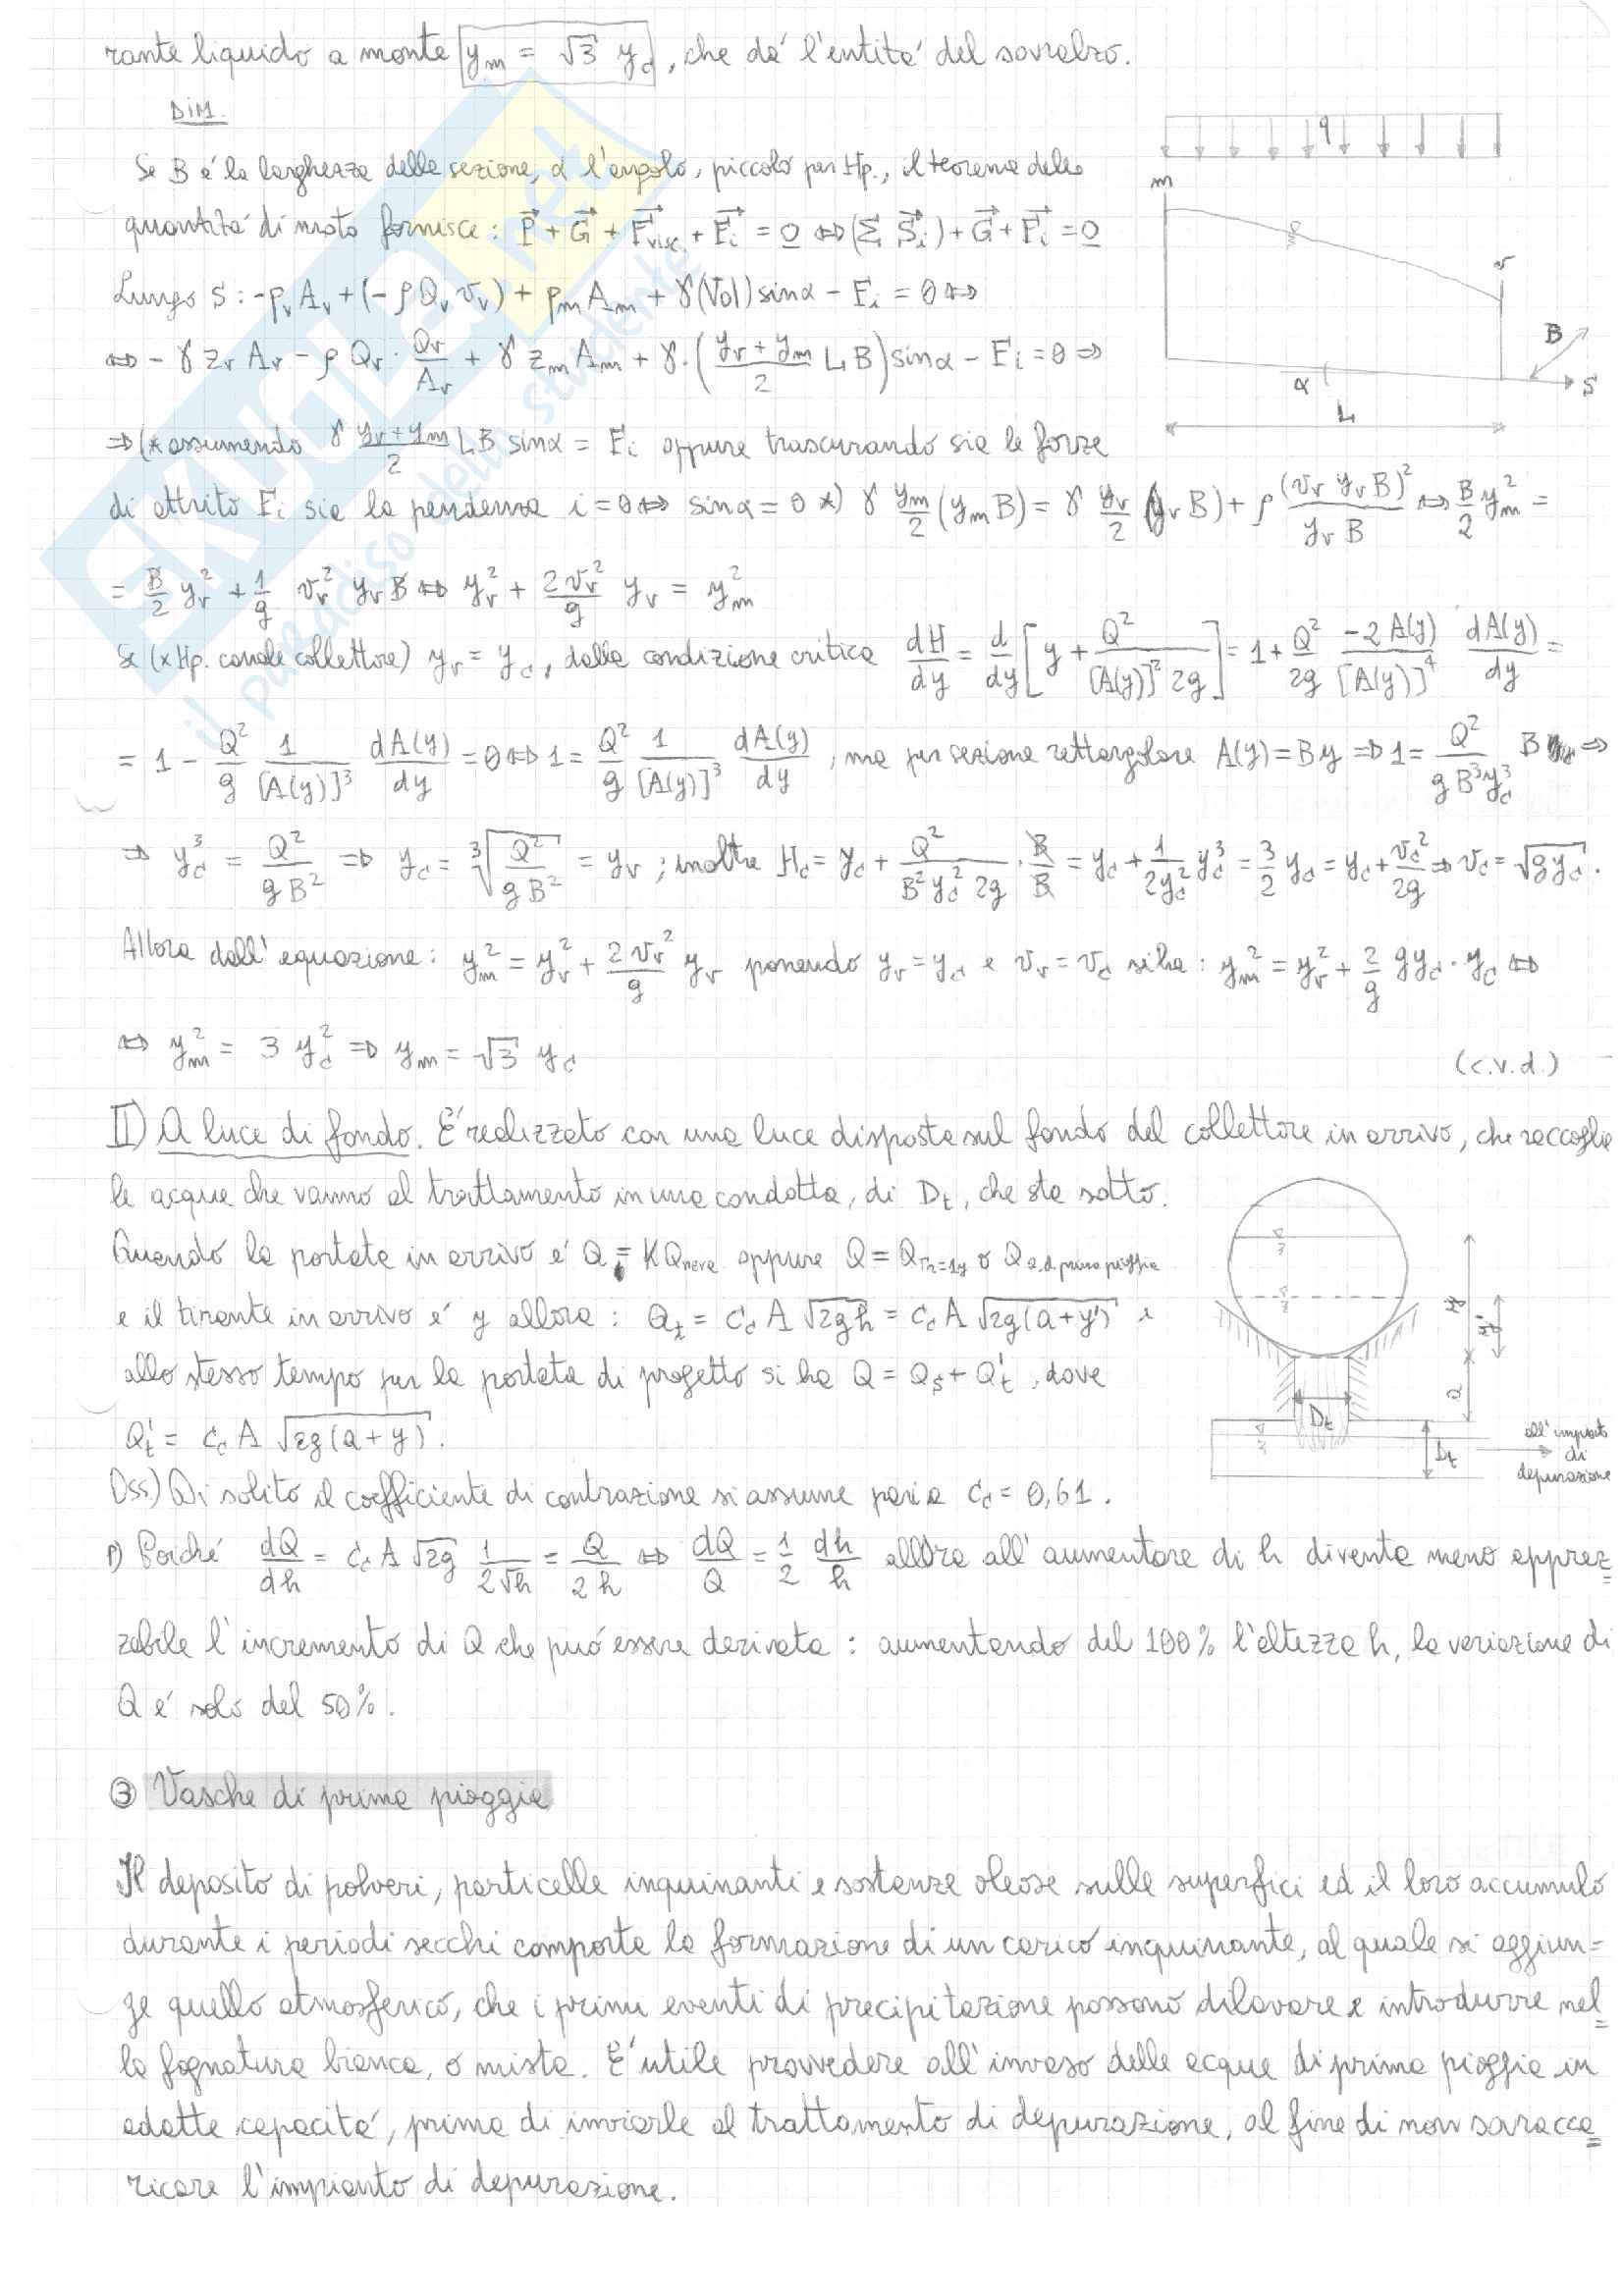 rante liquido a monte y_m = √3 y_c, che dà l'entità del sovralzo.
DIM.
Se B è la larghezza della sezione, α l'angolo, piccolo per Hp., il teorema della
quantità di moto fornisce: P + G + F_visc. + F_i = 0 ⇔ (Σ S_i) + G + F_i = 0
Lungo S: -p_v A_v + (-ρ Q_v v_v) + p_m A_m + γ(Vol) sinα - F_i = 0 ⇔
⇔ - γ z_v A_v - ρ Q_v · Q_v/A_v + γ z_m A_m + γ · ((y_v + y_m)/2 L B) sinα - F_i = 0 ⇒
⇒ (* assumendo γ (y_v + y_m)/2 L B sinα = F_i oppure trascurando sia le forze
di attrito F_i sia la pendenza i = 0 ⇔ sinα = 0 *) γ y_m/2 (y_m B) = γ y_v/2 (y_v B) + ρ (v_v y_v B)²/(y_v B) ⇔ B/2 y_m² =
= B/2 y_v² + 1/g v_v² y_v B ⇔ y_v² + 2v_v²/g y_v = y_m²
Se (x Hp. canale collettore) y_v = y_c, dalla condizione critica dH/dy = d/dy [y + Q²/([A(y)]² 2g)] = 1 + Q²/2g -2A(y)/[A(y)]⁴ dA(y)/dy =
= 1 - Q²/g 1/[A(y)]³ dA(y)/dy = 0 ⇔ 1 = Q²/g 1/[A(y)]³ dA(y)/dy ; ma per sezione rettangolare A(y) = By ⇒ 1 = Q²/(g B³y_c³) B ⇒
⇒ y_c³ = Q²/(g B²) ⇒ y_c = ∛(Q²/(g B²)) = y_v ; inoltre H_c = y_c + Q²/(B² y_c² 2g) · B/B = y_c + 1/(2y_c²) y_c³ = 3/2 y_c = y_c + v_c²/2g ⇒ v_c = √(g y_c) .
Allora dall'equazione: y_m² = y_v² + 2v_v²/g y_v ponendo y_v = y_c e v_v = v_c si ha: y_m² = y_v² + 2/g g y_c · y_c ⇔
⇔ y_m² = 3 y_c² ⇒ y_m = √3 y_c
(c.v.d.)
II) A luce di fondo. È realizzato con una luce disposta sul fondo del collettore in arrivo, che raccoglie
le acque che vanno al trattamento in una condotta, di D_t, che sta sotto.
Quando la portata in arrivo è Q = K Q_nera oppure Q = Q_Tr=1y o Q_a.d. prima pioggia
e il tirante in arrivo è y allora: Q_t = C_c A √(2gh) = C_c A √(2g(a+y')) e
allo stesso tempo per la portata di progetto si ha Q = Q_s + Q_t', dove
Q_t' = C_c A √(2g(a+y)) .
Oss.) Di solito il coefficiente di contrazione si assume pari a C_c = 0,61.
Poiché dQ/dh = C_c A √2g 1/(2√h) = Q/2h ⇔ dQ/Q = 1/2 dh/h allora all'aumentare di h diventa meno apprez=
zabile l'incremento di Q che può essere derivata: aumentando del 100% l'altezza h, la variazione di
Q è solo del 50%.
③ Vasche di prima pioggia
Il deposito di polveri, particelle inquinanti e sostanze oleose sulle superfici ed il loro accumulo
durante i periodi secchi comporta la formazione di un carico inquinante, al quale si aggiun=
ge quello atmosferico, che i primi eventi di precipitazione possono dilavare e introdurre nel=
la fognatura bianca, o mista. È utile provvedere all'invaso delle acque di prima pioggia in
adatte capacità, prima di inviarle al trattamento di depurazione, al fine di non sovracca=
ricare l'impianto di depurazione.
q
m
v
B
α
S
L
y
y'
a
D_t
D_t
all'impianto
di
depurazione
SKUOLA.net
il paradiso dello studente